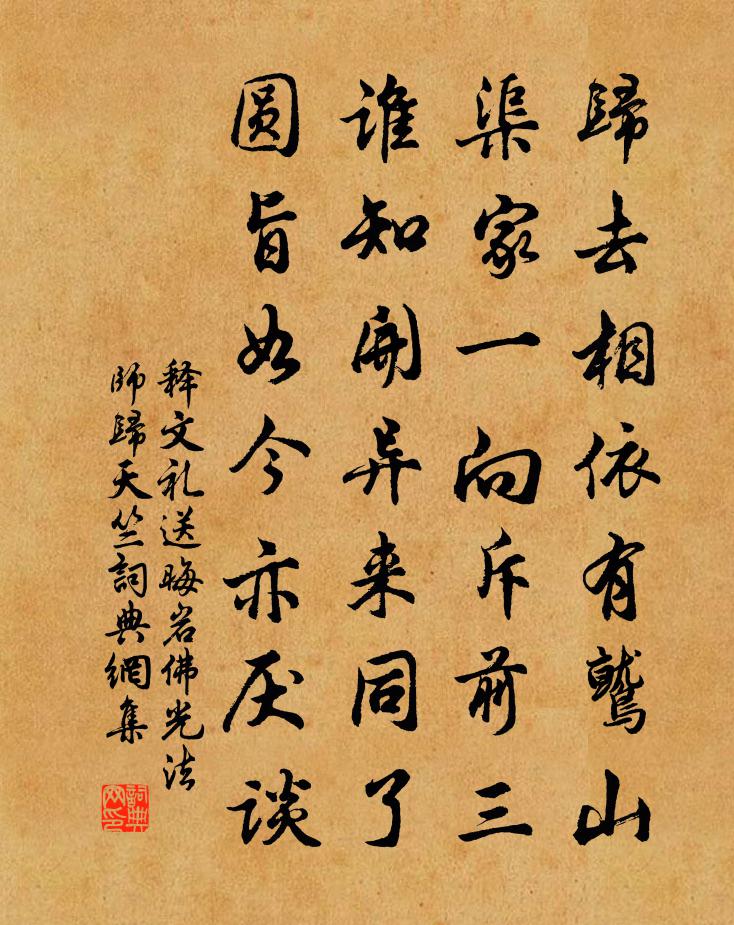 歸去相依有鷲山
渠家一向斥前三
谁知開异来同了
圆旨如今亦厌谈
释文礼送晦岩佛光法
師歸天竺詞典網集
詞典网印